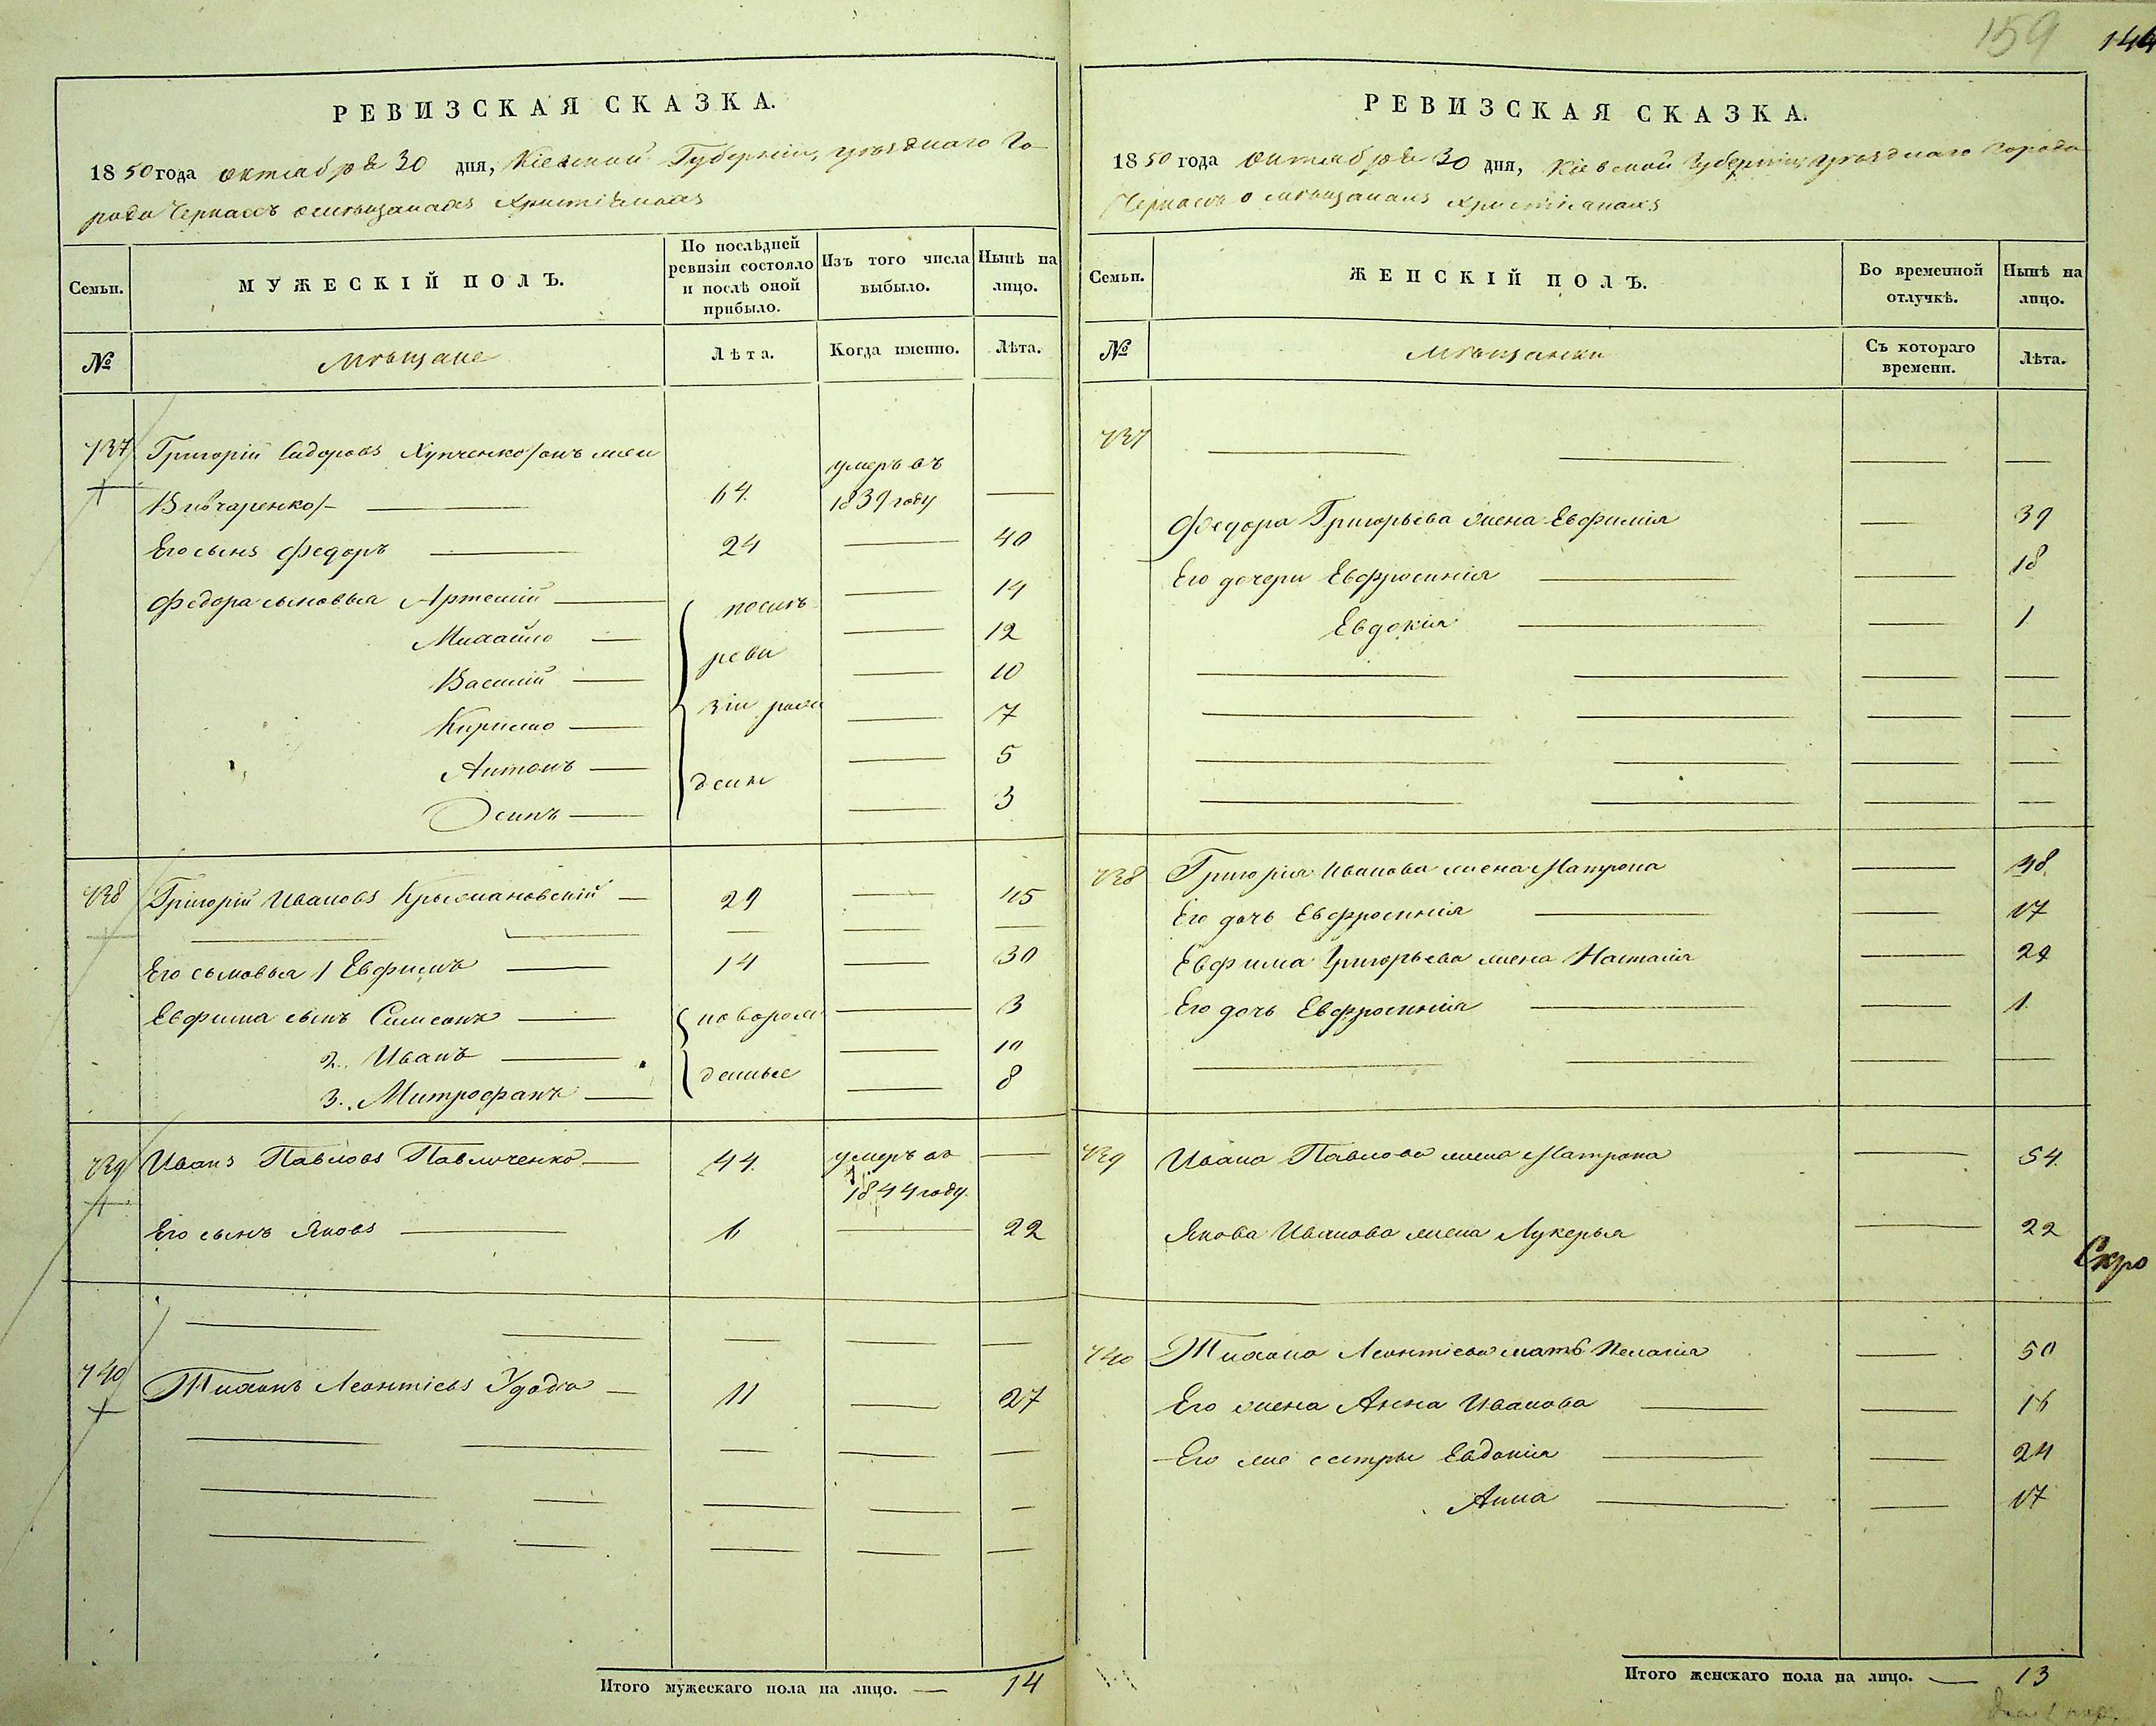 159 144
РЕВИЗСКАЯ СКАЗКА.
1850 года октября 30 дня, Кіевской Губерніи, уѣзднаго Го-
рода Черкасъ о мѣщанахъ Христіянахъ
Семьи. МУЖЕСКІЙ ПОЛЪ. По послѣдней ревизіи состояло и послѣ оной прибыло. Изъ того числа выбыло. Нынѣ на лицо.
№ Мѣщане Лѣта. Когда именно. Лѣта.
737 Григорій Сидоровъ Хупченко/онъ же и умеръ въ
Вивчаренко/— 64. 1839 году —
Его сынъ Федоръ — 24 — 40
Федора сыновья Артемій — послѣ — 14
Михайло — реви — 12
Василій — — 10
Кирило — зіи рож — 7
Антонъ — — 5
Осипъ — дены — 3
738 Григорій Ивановъ Крыжановскій — 29 — 45
Его сыновья 1 Евфимъ — 14 — 30
Евфима сынъ Симеонъ — новорож — 3
2. Иванъ — — 10
3. Митрофанъ — денные — 8
739 Иванъ Павловъ Павлюченко — 44. умеръ въ —
1844 году.
Его сынъ Яковъ — 6 — 22
740 Тихонъ Леонтіевъ Удодъ — 11 — 27
Итого мужескаго пола на лицо. — 14
РЕВИЗСКАЯ СКАЗКА.
1850 года октября 30 дня, Кіевской Губерніи, уѣзднаго Города
Черкасъ о мѣщанахъ христіанахъ
Семьи. ЖЕНСКІЙ ПОЛЪ. Во временной отлучкѣ. Нынѣ на лицо.
№ Мѣщанки Съ котораго времени. Лѣта.
737
Федора Григорьева жена Евфимія — 39
Его дочери Евфросинія — — 18
Евдокія — — 1
738 Григорія Иванова жена Матрона — 48.
Его дочь Евфросинія — — 17
Евфима Григорьева жена Настасія — 29
Его дочь Евфросинія — — 1.
739 Ивана Павлова жена Матрона — 54.
Якова Иванова жена Лукерья — 22
Скро
740 Тихона Леонтіева мать Пелагія — 50
Его жена Анна Иванова — — 16
Его же сестры Евдокія — — 24
Анна — — 17
Итого женскаго пола на лицо. — 13